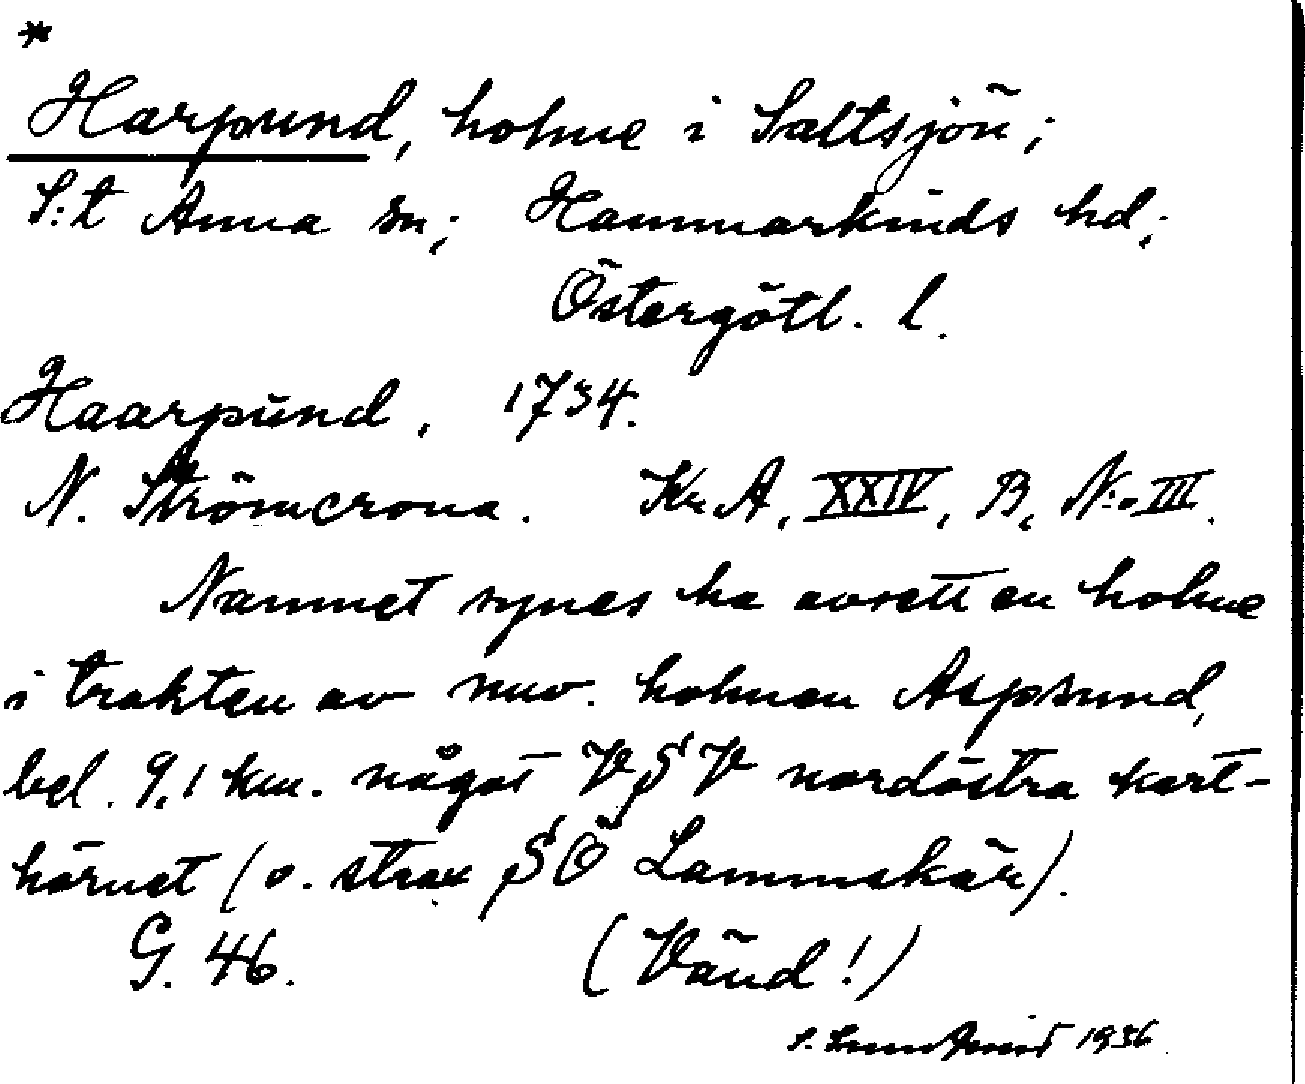 *
Harpund, holme i Saltsjön;
S:t Anna sn; Hammarkinds hd;
Östergötl. l.
Haarpund, 1734.
N. Strömcrona. Kr. A, XXIV, B, N:o III.
Namnet synes ha avsett en holme
i trakten av nuv. holmen Aspsund,
bel. 9,1 km. något VSV nordöstra kart-
hörnet (o. strax SÖ Lammskär).
G. 46. (Vänd!)
S. 1936